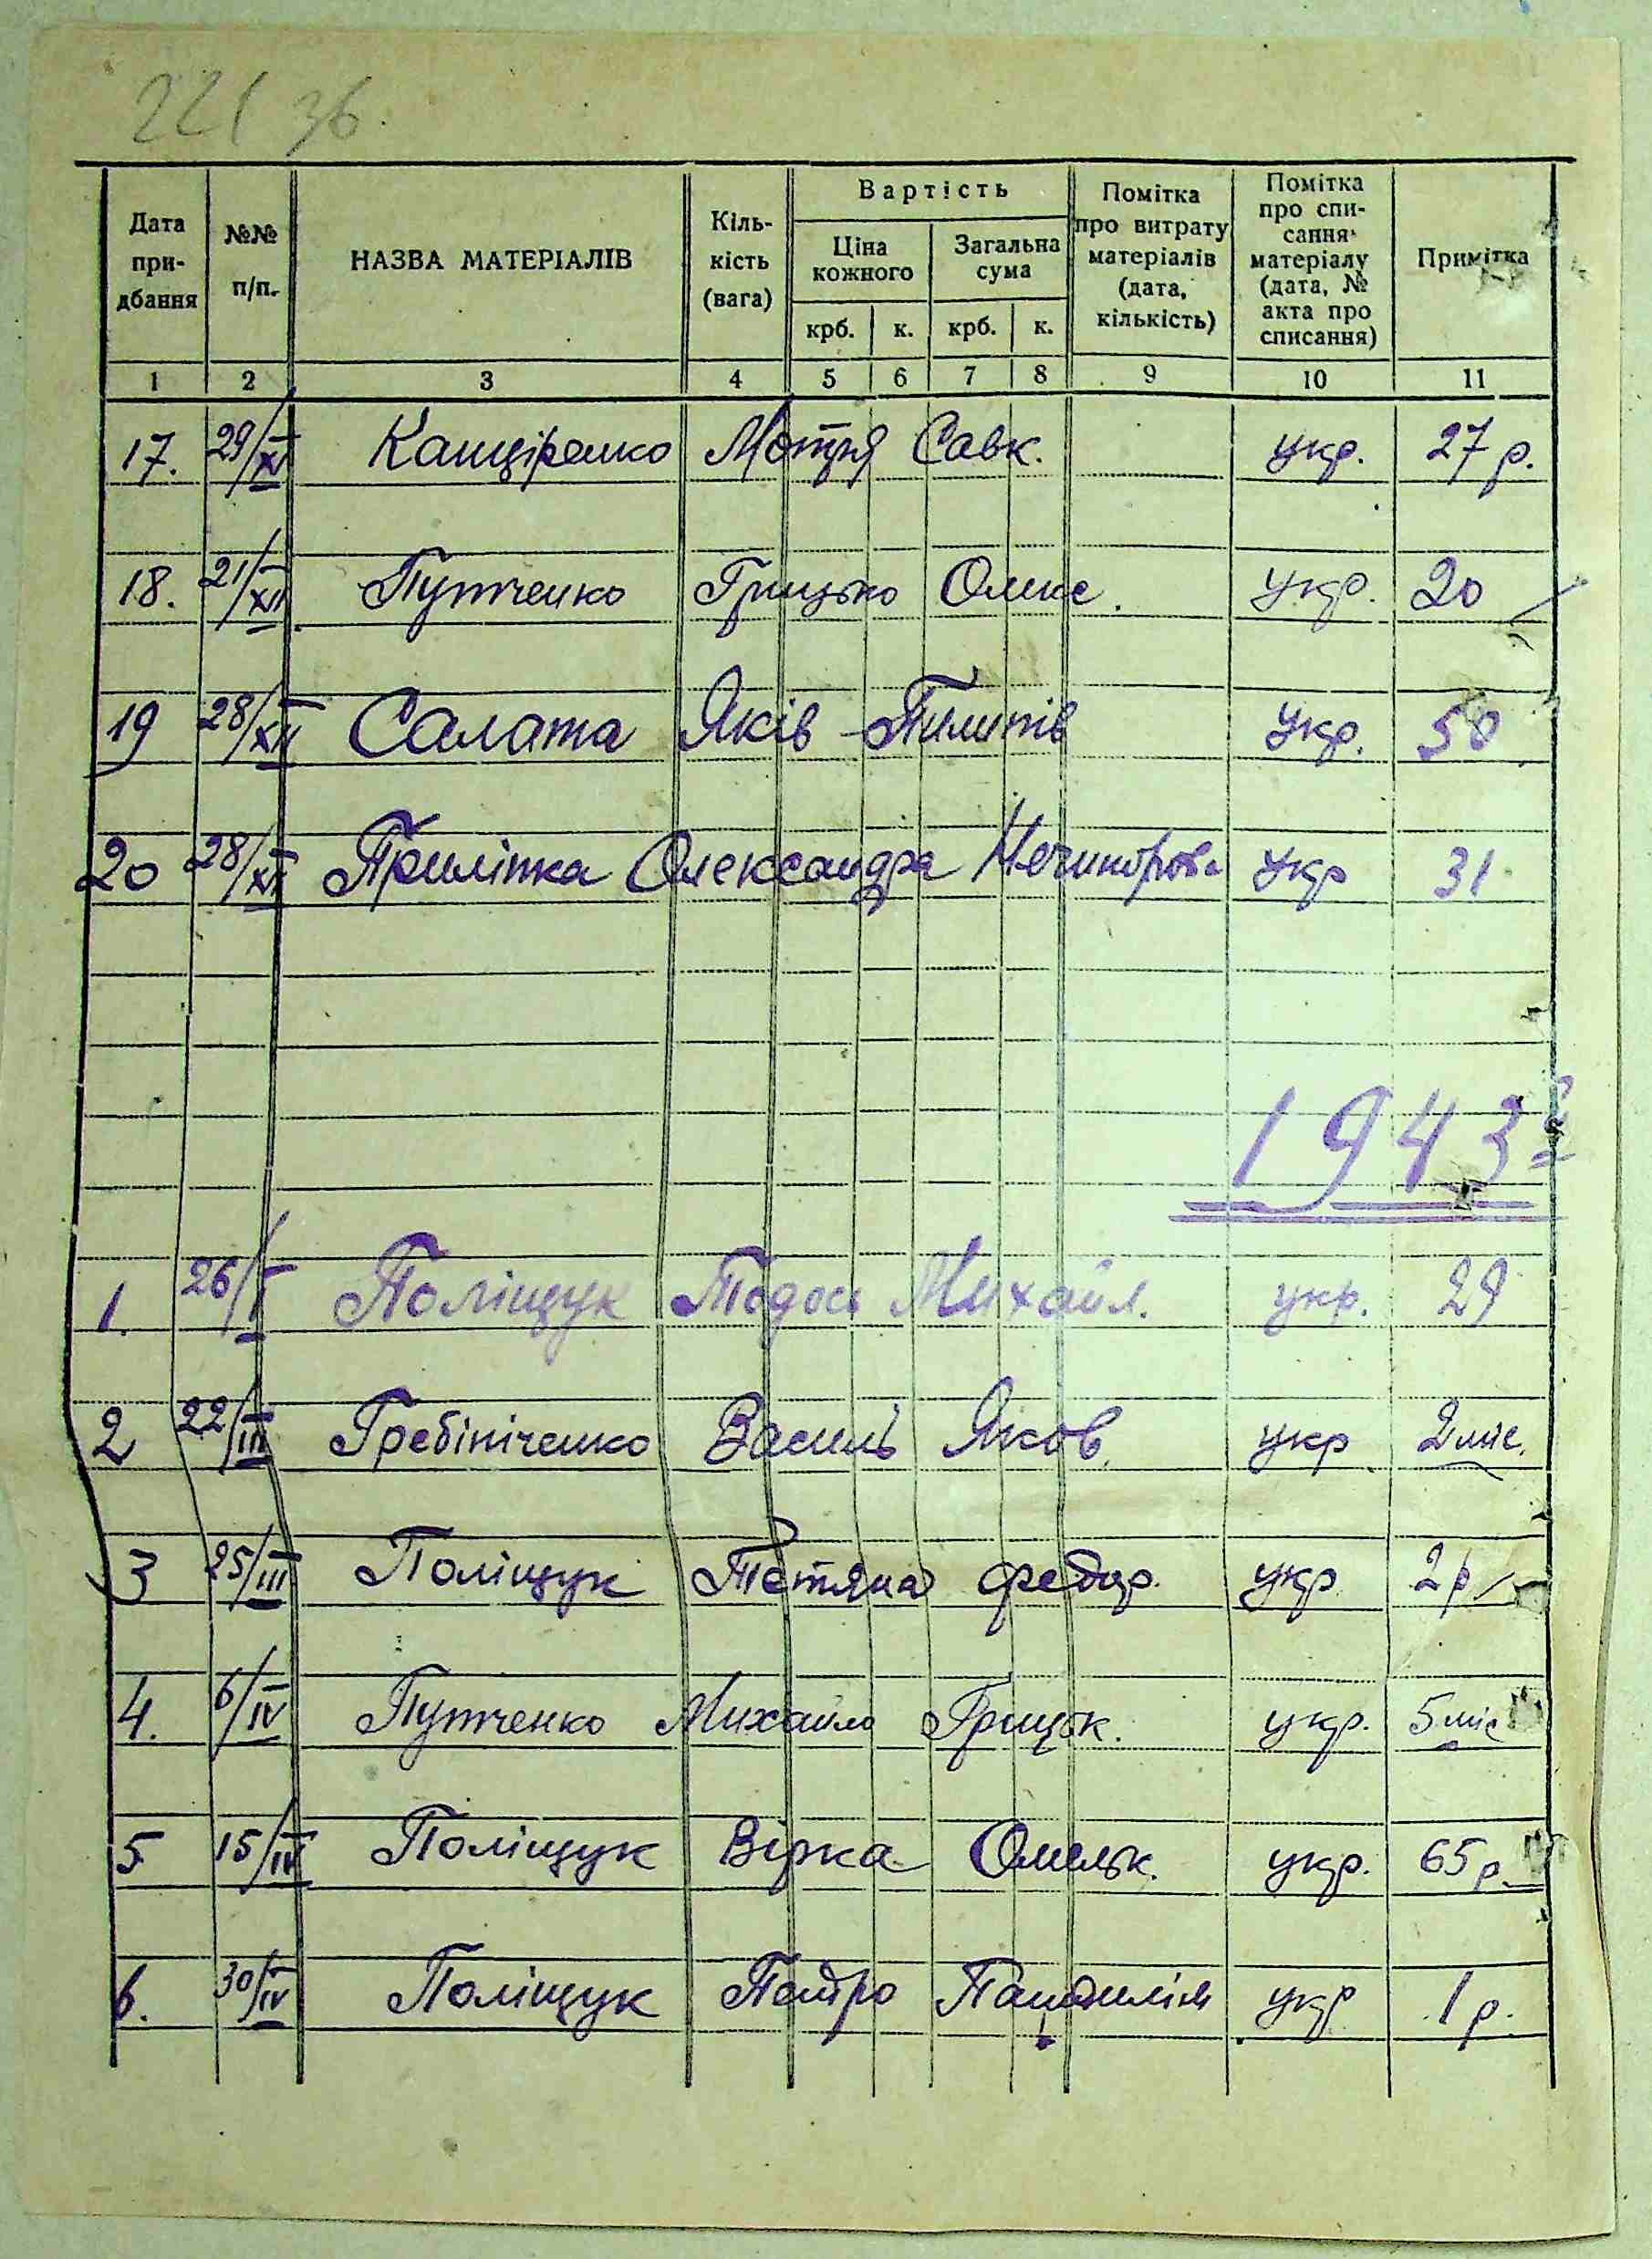 221 зв.
Дата при- дбання №№ п/п. НАЗВА МАТЕРІАЛІВ Кіль- кість (вага) Вартість Ціна кожного крб. к. Загальна сума крб. к. Помітка про витрату матеріалів (дата, кількість) Помітка про спи- сання матеріалу (дата, № акта про списання) Примітка
1 2 3 4 5 6 7 8 9 10 11
17. 29/XI Мотря Савк. укр. 27 р.
18. 21/XII Путченко Грицько Олекс. укр. 20
19 28/XII Салата Яків Пилипів укр. 50
20 28/XII Приліпка Олександра Нечипорова укр 31
1943 г
1. 26/I Поліщук Тодось Михайл. укр. 29
2 22/III Гребініченко Василь Яков. укр 2 міс.
3 25/III Поліщук Тетяна Федор. укр 2 р
4. 6/IV Путченко Михайло Грицьк. укр. 5 міс
5 15/IV Поліщук Вірка Омельк. укр. 65 р.
6. 30/IV Поліщук Петро укр 1 р.